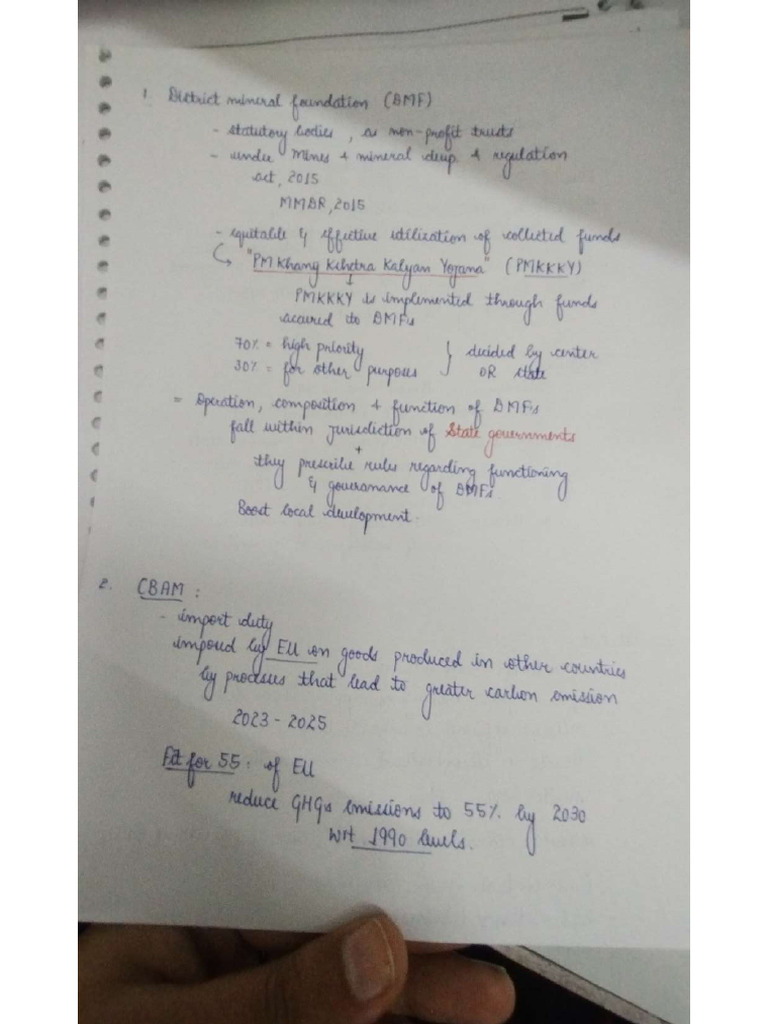 1. District mineral foundation (DMF)
- statutory bodies, as non-profit trusts
- under Mines & mineral deup. & regulation
act, 2015
MMDR, 2015
- equitable & effective utilization of collected funds
↳ "PM Khang Kshetra Kalyan Yojana" (PMKKKY)
↓
PMKKKY is implemented through funds
accured to DMFs
70% = high priority } decided by center
30% = for other purposes OR state
= Operation, composition & function of DMFs
fall within jurisdiction of State governments
+
they prescribe rules regarding functioning
& governance of DMFs
Boost local development.
2. CBAM :
- import duty
imposed by EU on goods produced in other countries
by processes that lead to greater carbon emission
2023 - 2025
Fit for 55 : of EU
reduce GHGs emissions to 55% by 2030
wrt 1990 levels.